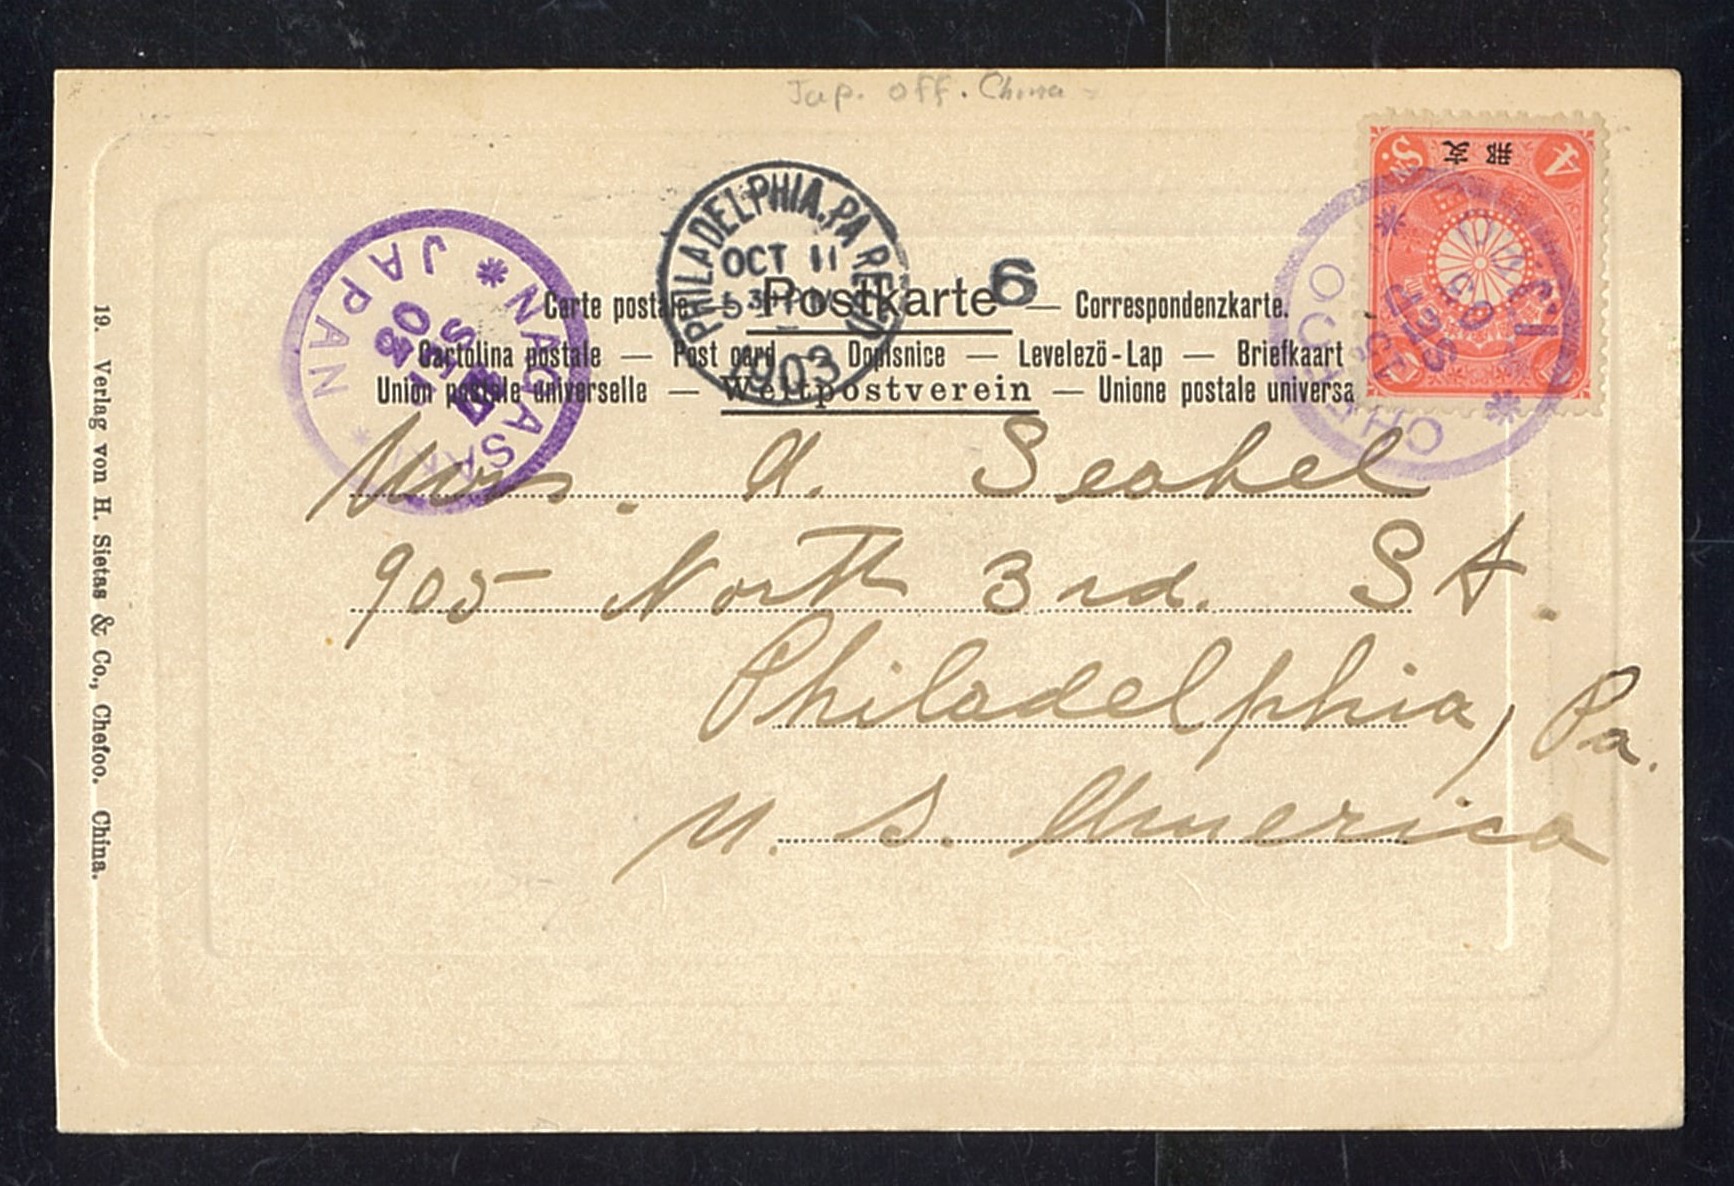 Jap. Off. China
支那
4 Sn.
PHILADELPHIA, PA REC'D
OCT 11
5 30 PM
1903
6
NAGASAKI
JAPAN
CHEFOO
SEP
Carte postale — Postkarte — Correspondenzkarte.
Cartolina postale — Post card — Dopisnice — Levelező-Lap — Briefkaart
Union postale universelle — Weltpostverein — Unione postale universa
Mrs. A. Seabel
905 North 3rd. St.
Philadelphia, Pa.
U. S. America
19. Verlag von H. Sietas & Co., Chefoo. China.